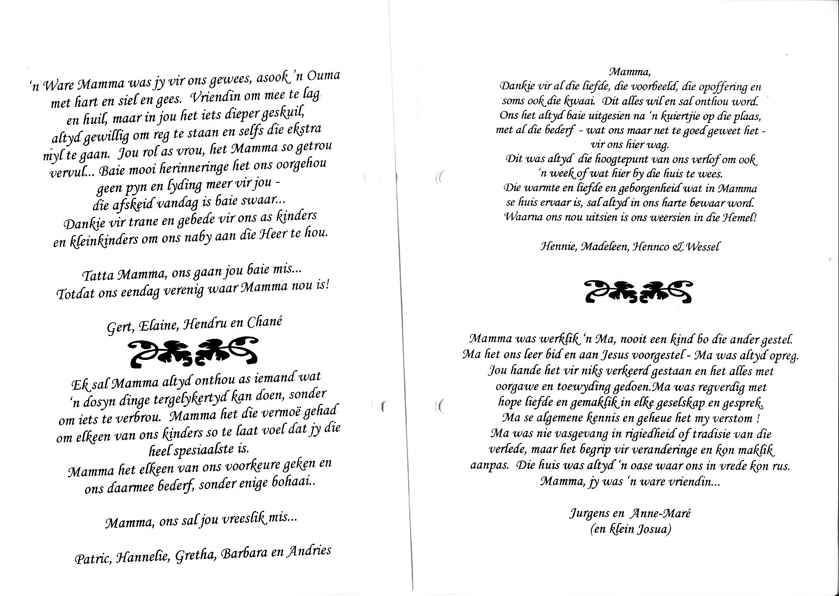 'n Ware Mamma was jy vir ons gewees, asook 'n Ouma
met hart en siel en gees. Vriendin om mee te lag
en huil, maar in jou het iets dieper geskuil,
altyd gewillig om reg te staan en selfs die ekstra
myl te gaan. Jou rol as vrou, het Mamma so getrou
vervul... Baie mooi herinneringe het ons oorgehou
geen pyn en lyding meer vir jou -
die afskeid vandag is baie swaar...
Dankie vir trane en gebede vir ons as kinders
en kleinkinders om ons naby aan die Heer te hou.
Tatta Mamma, ons gaan jou baie mis...
Totdat ons eendag verenig waar Mamma nou is!
Gert, Elaine, Hendru en Chané
Ek sal Mamma altyd onthou as iemand wat
'n dosyn dinge tergelykertyd kan doen, sonder
om iets te verbrou. Mamma het die vermoë gehad
om elkeen van ons kinders so te laat voel dat jy die
heel spesiaalste is.
Mamma het elkeen van ons voorkeure geken en
ons daarmee bederf, sonder enige bohaai..
Mamma, ons sal jou vreeslik mis...
Patric, Hannelie, Gretha, Barbara en Andries
Mamma,
Dankie vir al die liefde, die voorbeeld, die opoffering en
soms ook die kwaai. Dit alles wil en sal onthou word.
Ons het altyd baie uitgesien na 'n kuiertjie op die plaas,
met al die bederf - wat ons maar net te goed geweet het -
vir ons hier wag.
Dit was altyd die hoogtepunt van ons verlof om ook
'n week of wat hier by die huis te wees.
Die warmte en liefde en geborgenheid wat in Mamma
se huis ervaar is, sal altyd in ons harte bewaar word.
Waarna ons nou uitsien is ons weersien in die Hemel!
Hennie, Madeleen, Hennco & Wessel
Mamma was werklik 'n Ma, nooit een kind bo die ander gestel.
Ma het ons leer bid en aan Jesus voorgestel - Ma was altyd opreg.
Jou hande het vir niks verkeerd gestaan en het alles met
oorgawe en toewyding gedoen.Ma was regverdig met
hope liefde en gemaklik in elke geselskap en gesprek.
Ma se algemene kennis en geheue het my verstom !
Ma was nie vasgevang in rigiedheid of tradisie van die
verlede, maar het begrip vir veranderinge en kon maklik
aanpas. Die huis was altyd 'n oase waar ons in vrede kon rus.
Mamma, jy was 'n ware vriendin...
Jurgens en Anne-Maré
(en klein Josua)